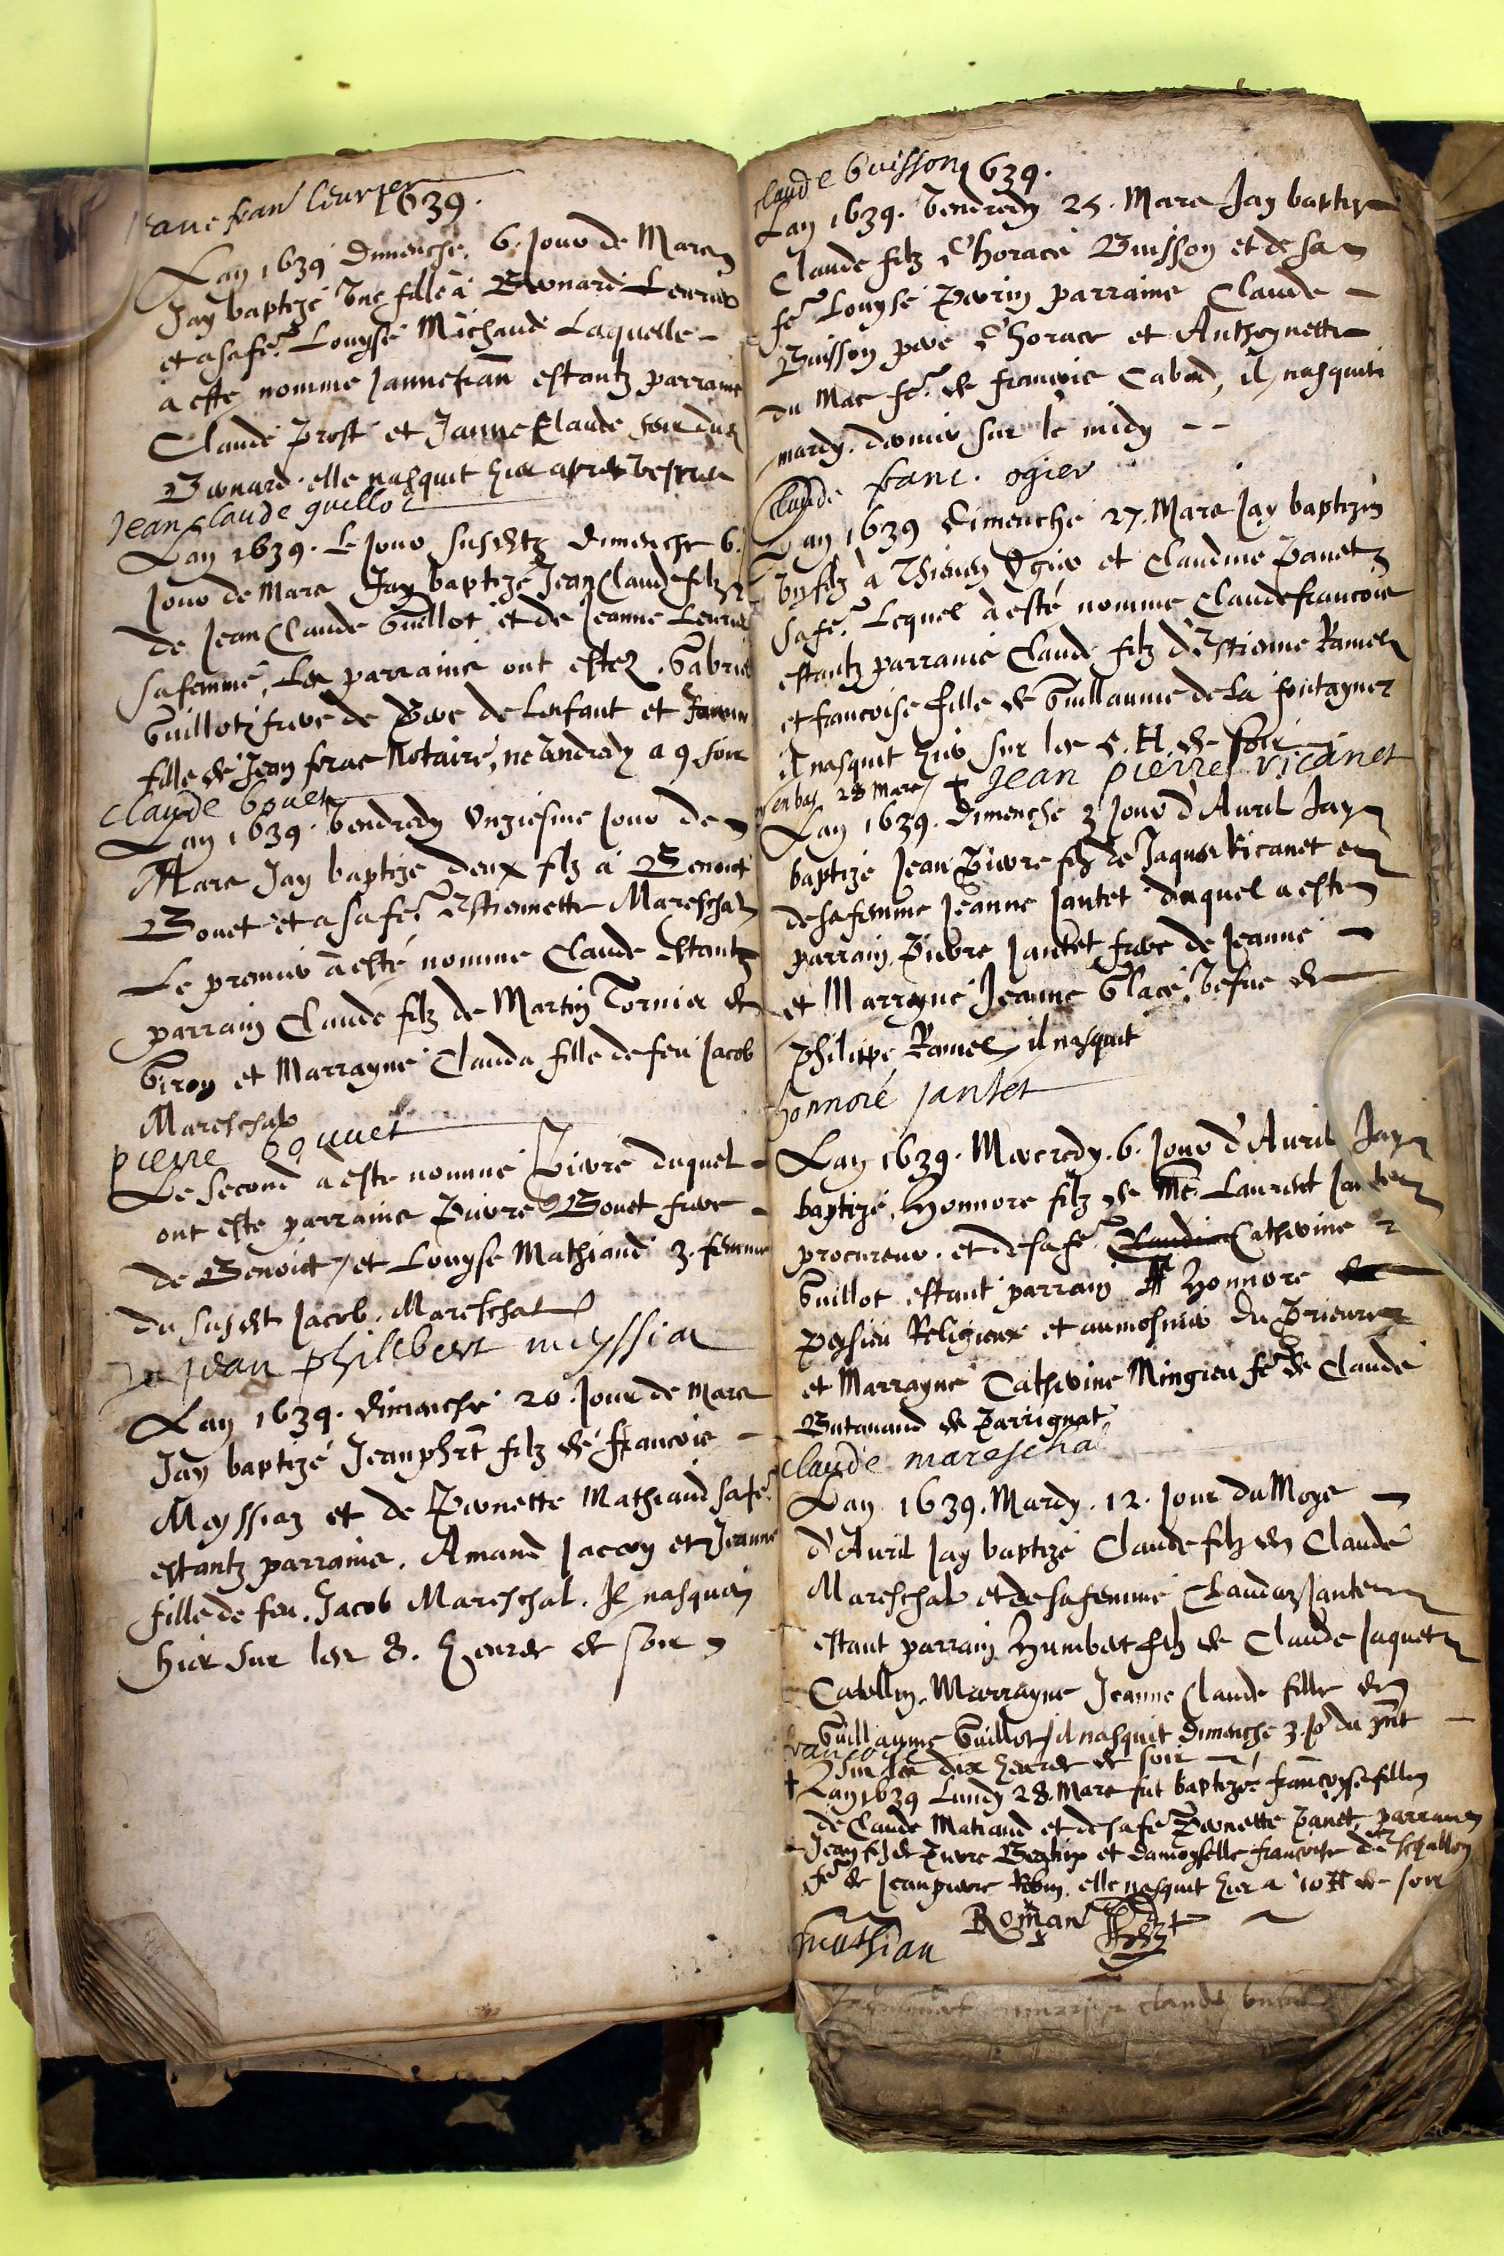 Janne fran Leurier
1639.
Lan 1639 Dimenche. 6. Jour de Mars
Jay baptizé une fille à Bernard Leurier
et a sa fe. Louyse Michaude Laquelle
à esté nomme Jannefran estantz parrains
Claude Prost et Janne Claude soeur du
Bernard. elle nasquit hier apres vespres
Jean Claude guillot
Lan 1639. Le Jour susdt Dimenche 6.
Jour de Mars Jay baptizé Jean Claude filz
de Jean Claude Guillot et de Jeanne Leurier
sa femme, Les parrains ont estez. Gabriel
Guillot frere de Pere de Lenfant et
fille de Jean feras Notaire, né vendredy a 9 soir
Claude bouet
Lan 1639. Vendredy Unziesme Jour de
Mars Jay baptizé deux filz à Benoict
Bouet et a sa fe. Estiennette Mareschal
Le premier à esté nomme Claude estantz
parrain Claude filz de Martin Tornier de
Giron et Marrayne Clauda fille de feu Jacob
Mareschal
pierre bouuet
Le second a esté nomme Pierre duquel
ont esté parrains Pierre Bouet frere
de Benoict, et Louyse Mathiaude 3. femme
du susdt Jacob. Mareschal
Jean philibert meyssia
Lan 1639. dimenche 20. Jour de Mars
Jay baptizé Jeanphrt filz de francois
Meyssiaz et de Pernette Mathiaud sa fe.
estantz parrains. Amand Jaccoy et Jeanne
fille de feu. Jacob Mareschal. Il nasquit
hier sur les 8. heures de soir
Claude buisson 1639.
Lan 1639. Vendredy 25. Mars Jay baptizé
Claude filz d'horace Buisson et de sa
fe. Louyse Perrin parrains Claude
Buisson pere d'horace et Anthoynette
du Mas fe. de francois Cabod, il nasquit
mardy. dernier sur le midy
Claude franc. ogier
Lan 1639 Dimenche 27. Mars Jay baptizé
un filz à Thieven Ogier et Claudine Panet
sa fe. Lequel à esté nomme Claude francois
estantz parrains Claude filz d'Estienne Ramel
et francoise fille de Guillaume de la fontayne
il nasquit hier sur les 5. H. de soir
en bas 28 mars + Jean pierre ricanet
Lan 1639. Dimenche 3 Jour d'Auril Jay
baptizé Jean Pierre filz de Jaques Ricanet et
de sa femme Jeanne Jantet duquel a esté
parrain, Pierre Jantet frere de Jeanne
et Marrayne Jeanne Glace, vefue de
Philippe Ramel, il nasquit
honnoré jantet
Lan 1639. Mercredy. 6. Jour d'Auril Jay
baptizé, Honnore filz de Me. Laurent Jantet
procureur. et de sa fe. Catherine
Guillot, estant parrain Honnore
Peysieu Religieux et aumosnier du Prieure
et Marrayne Catherine Mingieu fe. de Claude
Butauand de Parrignat
Claude mareschal
Lan 1639. Mardy. 12. Jour du Moys
d'Auril Jay baptizé Claude filz de Claude
Mareschal, et de sa femme Clauda Jantet
estant parrain Humbert filz de Claude Jaquet
Marrayne Jeanne Claude fille de
Guillaume Guillot, il nasquit dimenche 3. Jo. du pnt
francoise
sur les dix heures de soir
+ Lan 1639 Lundy 28. Mars fut baptizée francoyse fille
de Claude Matiaud et de sa fe. Pernette Panet, parrain
Jean filz de Pierre et damoyselle francoise de
fe. de Jean pierre Robin. elle nasquit hier a 10 H de soir
Mathiau
Roman Pbr